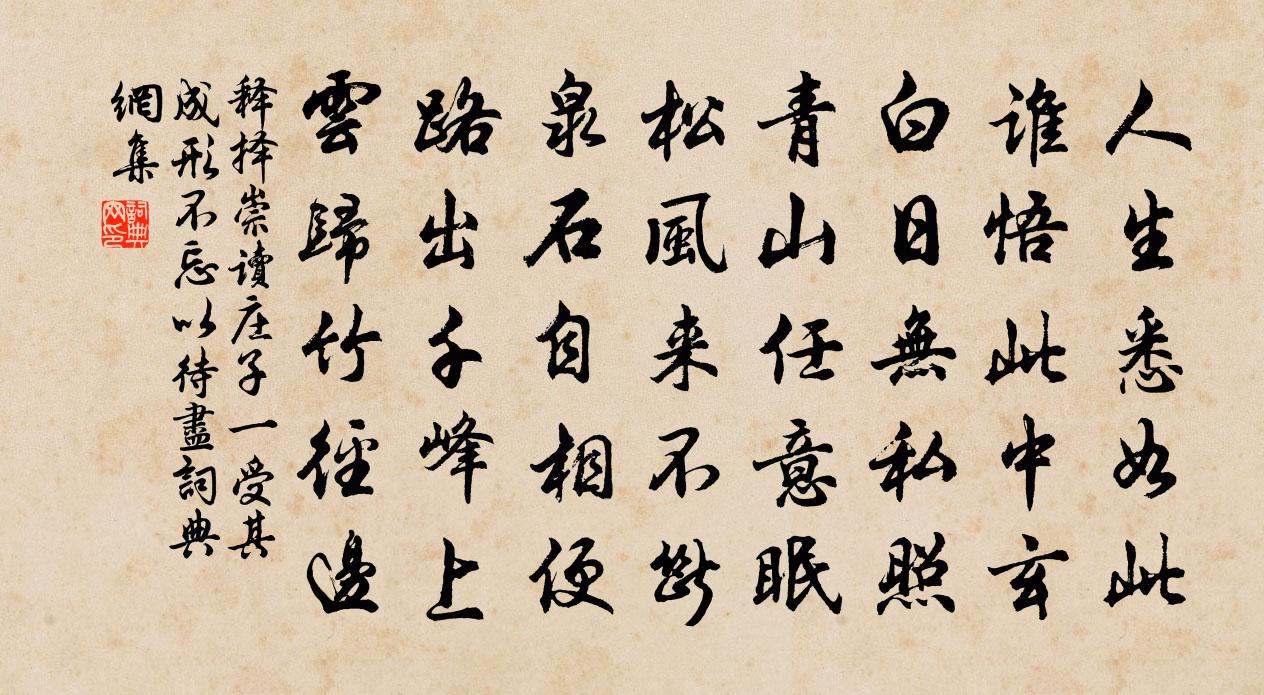 人生悉如此
谁悟此中玄
白日無私照
青山任意眠
松風来不斷
泉石自相便
路出千峰上
雲歸竹徑邊
释择崇讀庄子一受其
成形不忘以待盡詞典
網集
詞典
网印